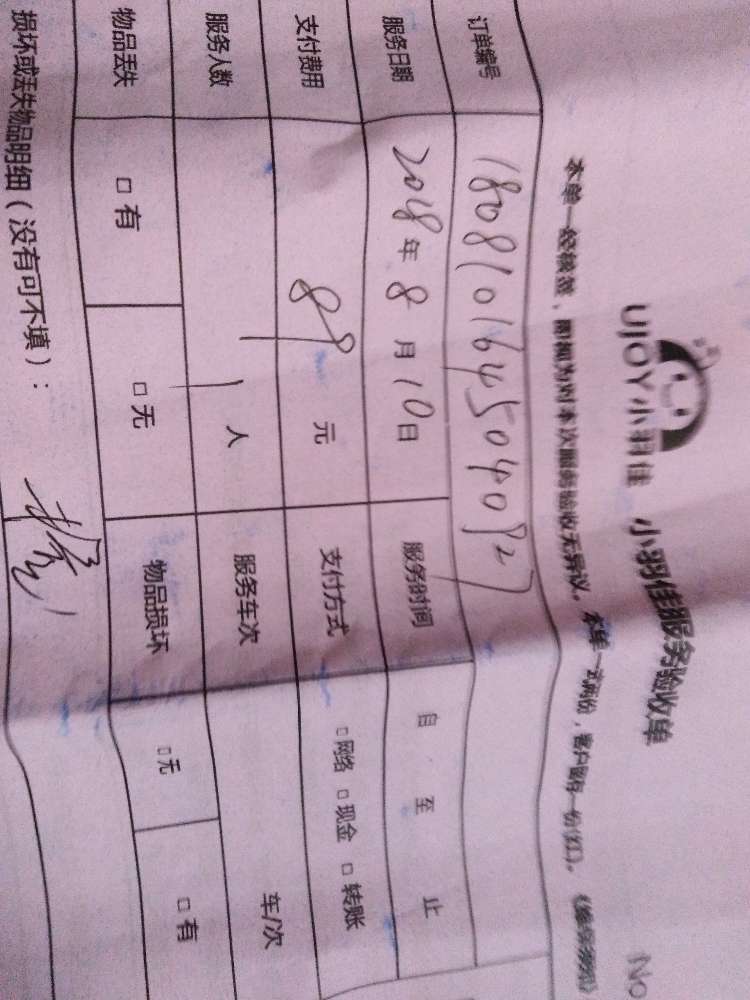 UJOY小羽佳 小羽佳服务验收单 No
本单一经核签，即视为对本次服务验收无异议。本单一式两份，客户留存一份(红)。
订单编号 1808101645040927
服务日期 2018年8月10日 服务时间 自 至 止
支付费用 89元 支付方式 □网络 □现金 □转账
服务人数 1人 服务车次 车/次
物品丢失 □有 □无 物品损坏 □无 □有
损坏或丢失物品明细（没有可不填）：